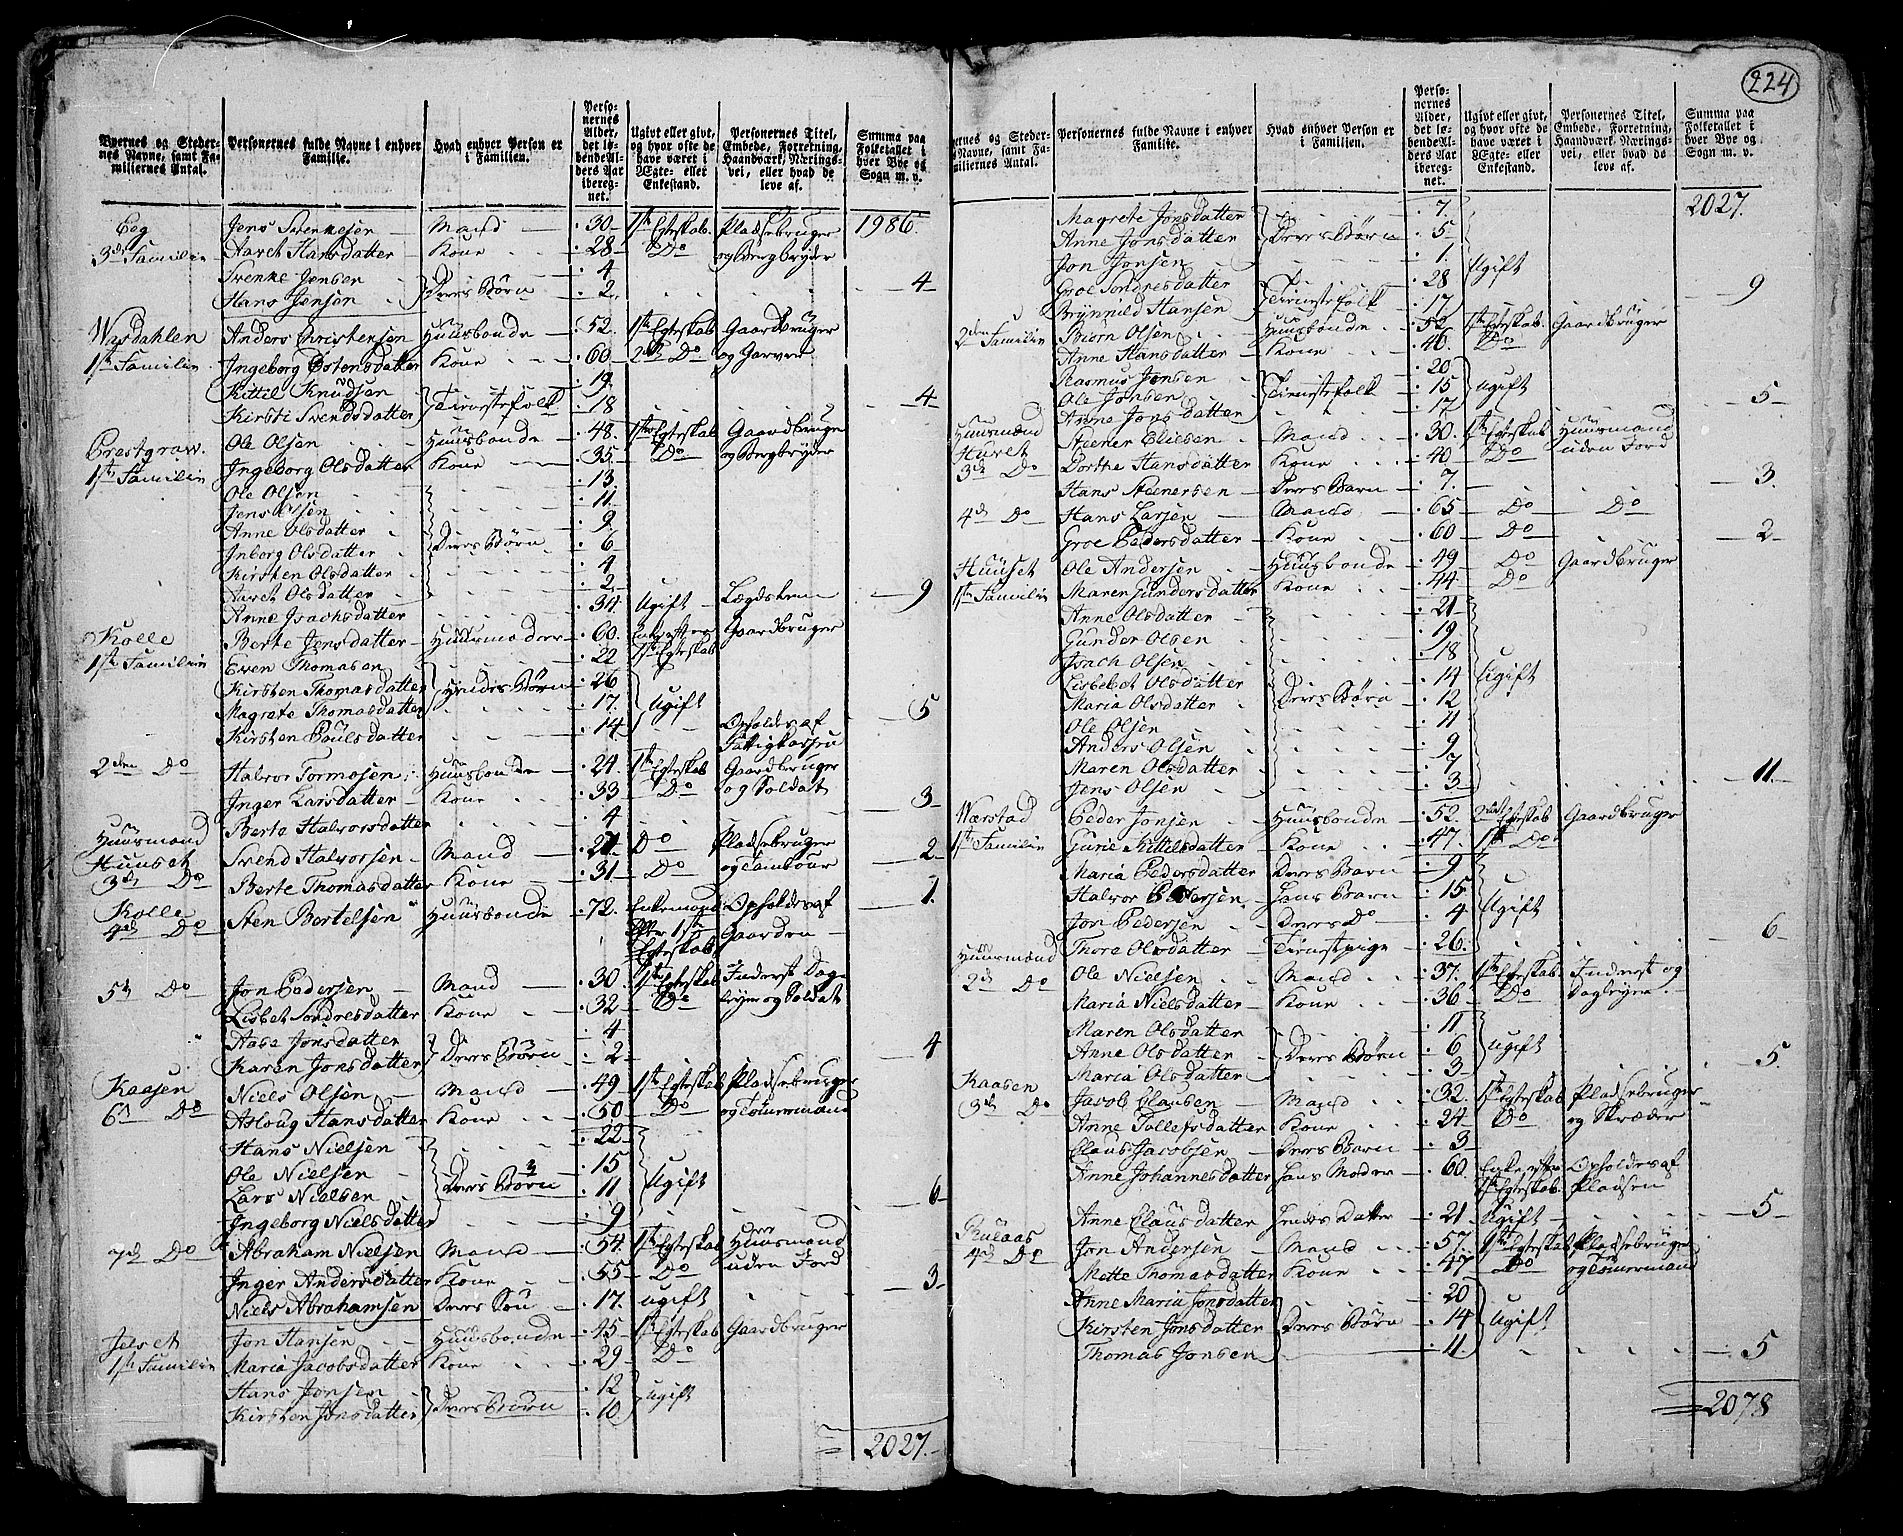 224
Byernes og Stedernes Navne, samt Familiernes Antal. | Personernes fulde Navne i enhver Familie. | Hvad enhver Person er i Familien. | Personernes Alder, det løbende Alders Aar iberegnet. | Ugivt eller givt, og hvor ofte de have været i Ægte- eller Enkestand. | Personernes Titel, Embede, Forretning, Haandværk, Næringsvei, eller hvad de leve af. | Summa paa Folketallet i hver Bye og Sogn m. v.
Eeg | Jens Svenkesen | Mand | 30 | 1ste Egteskab | Pladsebruger | 1986
3de Familie | Aaret Hansdatter | Kone | 28 | Do | og Bergbryder
Svenke Jensen | 4
Hans Jensen | Deres Børn | 2 | 4
Wasdahlen | Anders Christensen | Huusbonde | 52 | 1ste Egteskab | Gaardbruger
1ste Familie | Ingeborg Østensdatter | Kone | 60 | 2det Do | og Garver
Kittil Knudsen | 19
Kirsti Svendsdatter | Tienestefolk | 18 | 4
Prestgrav. | Ole Olsen | Huusbonde | 48 | 1ste Egteskab | Gaardbruger
1ste Familie | Ingeborg Olsdatter | Kone | 35 | Do | og Bergbryder
Ole Olsen | 13
Jens Olsen | 11
Anne Olsdatter | 9
Inborg Olsdatter | Deres Børn | 6
Kirsten Olsdatter | 4
Aaret Olsdatter | 2
Anne Isachsdatter | 34 | Ugift | Lægdslem | 9
Kolle | Berte Jensdatter | Huusmoder | 60 | Enke efter | Gaardbruger
1ste Familie | Even Thomasen | 22 | 1ste Egteskab
Kirsten Thomasdatter | Hendes Børn | 26
Magrete Thomasdatter | 17 | Ugift | 5
Kirsten Poulsdatter | 14 | Opholdes af Fattigkassen
2den Do | Halvor Tormosen | Huusbonde | 24 | 1ste Egteskab | Gaardbruger
Inger Larsdatter | Kone | 33 | Do | og Soldat | 3
Berte Halvorsdatter | 4
Huusmænd
Huuset | Svend Halvorsen | Mand | 27 | Do | Pladsebruger | 2
3de Do | Berte Thomasdatter | Kone | 31 | Do | og Tambour
Kolle | Sten Bertelsen | Huusbonde | 72 | Enkemand | Opholdes af | 1
4de Do | efter 1ste Egteskab | Gaarden
5te Do | Jon Pedersen | Mand | 30 | 1ste Egteskab | Inderst Dag-
Lisbet Sondresdatter | Kone | 32 | Do | leyer og Soldat
Aase Jonsdatter | 4
Karen Jonsdatter | Deres Børn | 2 | 4
Kaasen | Niels Olsen | Mand | 49 | 1ste Egteskab | Pladsebruger
6te Do | Asloug Hansdatter | Kone | 50 | Do | og Tømmermand
Hans Nielsen | 22
Ole Nielsen | 15
Lars Nielsen | Deres Børn | 11 | Ugift | 6
Ingeborg Nielsdatter | 9
7de Do | Abraham Nielsen | Mand | 54 | 1ste Egteskab | Huusmand
Inger Andersdatter | Kone | 55 | Do | uden Jord | 3
Niels Abrahamsen | Deres Søn | 17 | ugift
Jelset | Jon Hansen | Huusbonde | 45 | 1ste Egteskab | Gaardbruger
1ste Familie | Maria Jacobsdatter | Kone | 29 | Do
Hans Jonsen | 12
Kirsten Jonsdatter | Deres Børn | 10 | ugift
2027
Byernes og Stedernes Navne, samt Familiernes Antal. | Personernes fulde Navne i enhver Familie. | Hvad enhver Person er i Familien. | Personernes Alder, det løbende Alders Aar iberegnet. | Ugivt eller givt, og hvor ofte de have været i Ægte- eller Enkestand. | Personernes Titel, Embede, Forretning, Haandværk, Næringsvei, eller hvad de leve af. | Summa paa Folketallet i hver Bye og Sogn m. v.
2027
Magrete Jonsdatter | 7
Anne Jonsdatter | Deres Børn | 5
Jon Jonsen | 1
Groe Sondresdatter | 28 | Ugift
Brynnild Hansen | Tienestefolk | 17 | 9
2den Familie | Biørn Olsen | Huusbonde | 52 | 1ste Egteskab | Gaardbruger
Anne Hansdatter | Kone | 46 | Do
Rasmus Jonsen | 20
Ole Jonsen | Tienestefolk | 15 | ugift | 5
Anne Jonsdatter | 17
Huusmænd
Huset | Steener Eliesen | Mand | 30 | 1ste Egteskab | Huusmand
3de Do | Dorthe Hansdatter | Kone | 40 | Do | uden Jord
Hans Steenersen | Deres Barn | 7 | 3
4de Do | Hans Larsen | Mand | 65 | Do | Do
Groe Pedersdatter | Kone | 60 | Do | 2
Huuset | Ole Andersen | Huusbonde | 49 | Do | Gaardbruger
1ste Familie | Maren Gundersdatter | Kone | 44 | Do
Anne Olsdatter | 21
Gunder Olsen | 19
Isach Olsen | 18
Lisbebet Olsdatter | 14 | Ugift
Maria Olsdatter | Deres Børn | 12
Ole Olsen | 11
Anders Olsen | 9
Maren Olsdatter | 7
Jens Olsen | 3 | 11
Nærstad | Peder Jonsen | Huusbonde | 52 | 2det Egteskab | Gaardbruger
1ste Familie | Gurie Kittilsdatter | Kone | 47 | 1ste Do
Maria Pedersdatter | Deres Barn | 9
Halvor Pedersen | Hans Barn | 15
Jon Pedersen | Deres Do | 4 | Ugift
Thore Olsdatter | Tienestpige | 26 | 6
Huusmænd
2de Do | Ole Nielsen | Mand | 37 | 1ste Egteskab | Inderst og
Maria Nielsdatter | Kone | 36 | Do | Dagleyer
Maren Olsdatter | 11
Anne Olsdatter | Deres Børn | 6 | ugift | 5
Maria Olsdatter | 3
Kaasen | Jacob Clausen | Mand | 32 | 1ste Egteskab | Pladsebruger
3de Do | Anne Tollefsdatter | Kone | 24 | Do | og Skræder
Claus Jacobsen | Deres Barn | 3
Anne Johannesdatter | Hans Moder | 60 | Enke efter 1ste Egteskab | Opholdes af Pladsen
Anne Clausdatter | Hendes Datter | 21 | Ugift | 5
Rulaas | Jon Andersen | Mand | 57 | 1ste Egteskab | Pladsebruger
4de Do | Mette Thomasdatter | Kone | 47 | Do | og Tømmermand
Anne Maria Jonsdatter | 20
Kirsten Jonsdatter | Deres Børn | 14 | Ugift
Thomas Jonsen | 11 | 5
2078